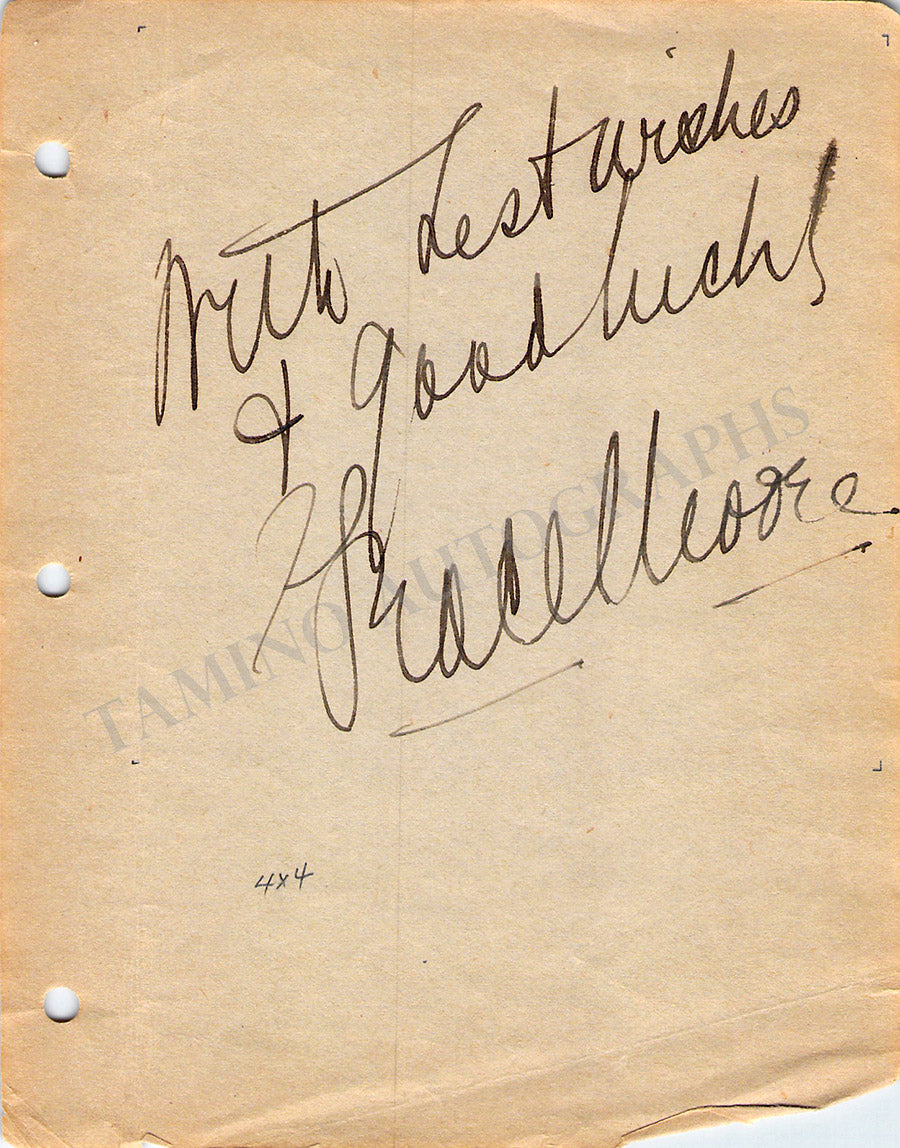 With best wishes
& good luck!
Grace Moore
TAMINO AUTOGRAPHS
4x4